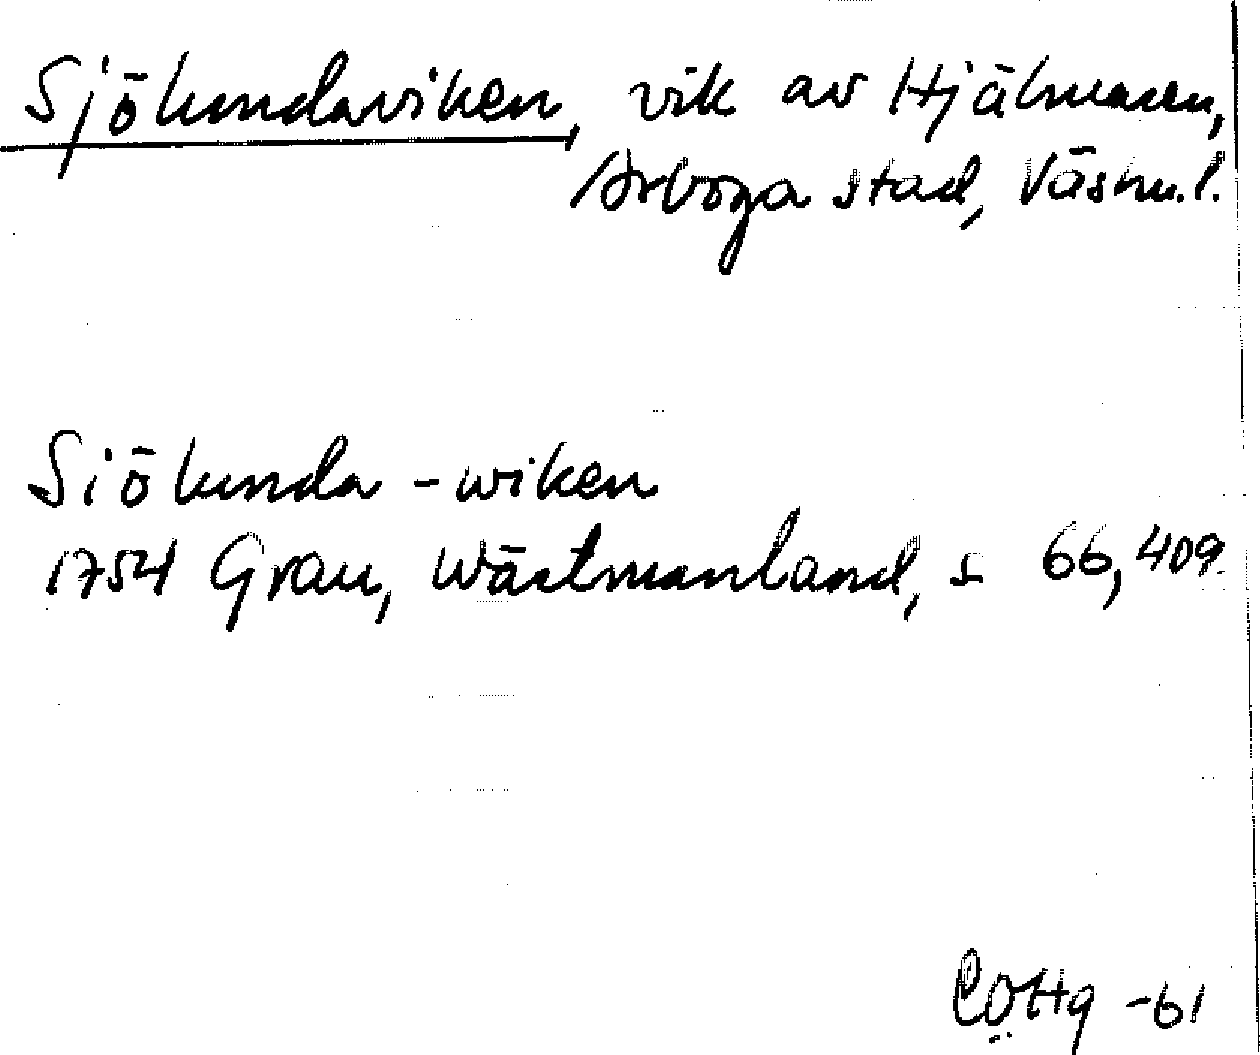 Sjölundaviken, vik av Hjälmaren,
Arboga stad, Västm.l.
Siölunda-wiken
1754 Grau, Wästmanland, s 66, 409.
CÖHg -61